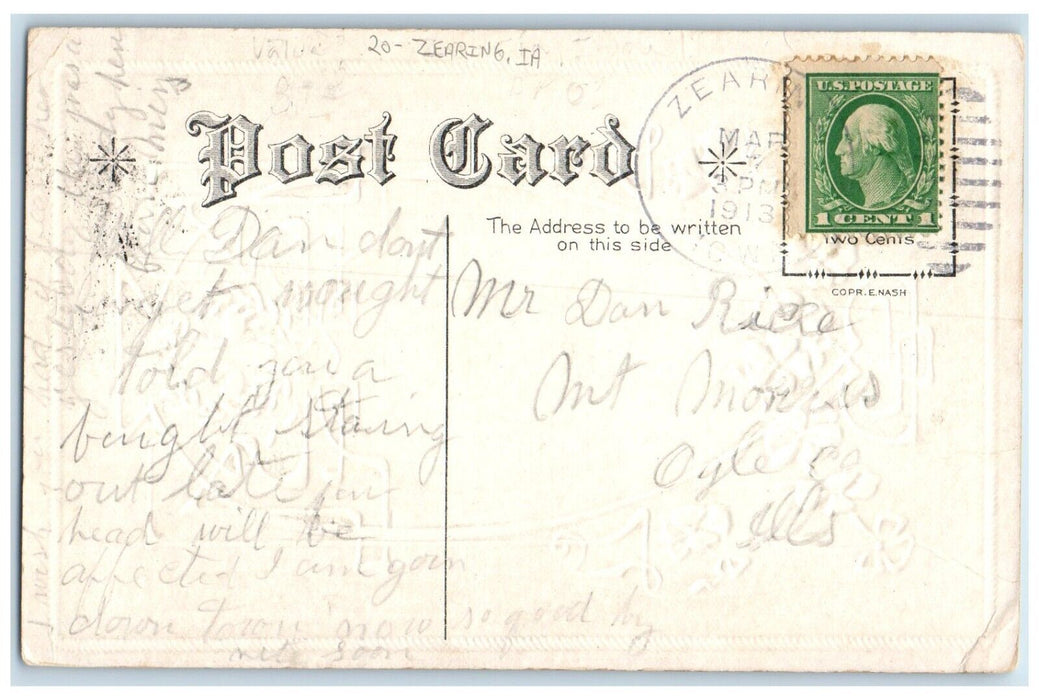 20- ZEARING, IA
Post Card
The Address to be written
on this side
ZEAR
MAR
3 PM
1913
U.S. POSTAGE
1 CENT 1
Two Cents
COPR. E. NASH
Dan dont
forget nought
told you a
bought staing
out late
head will be
affected I am goin
down town now so good by
rite soon
I wish had of
Mr Dan Rice
Mt Morris
Ogle Co
Ills